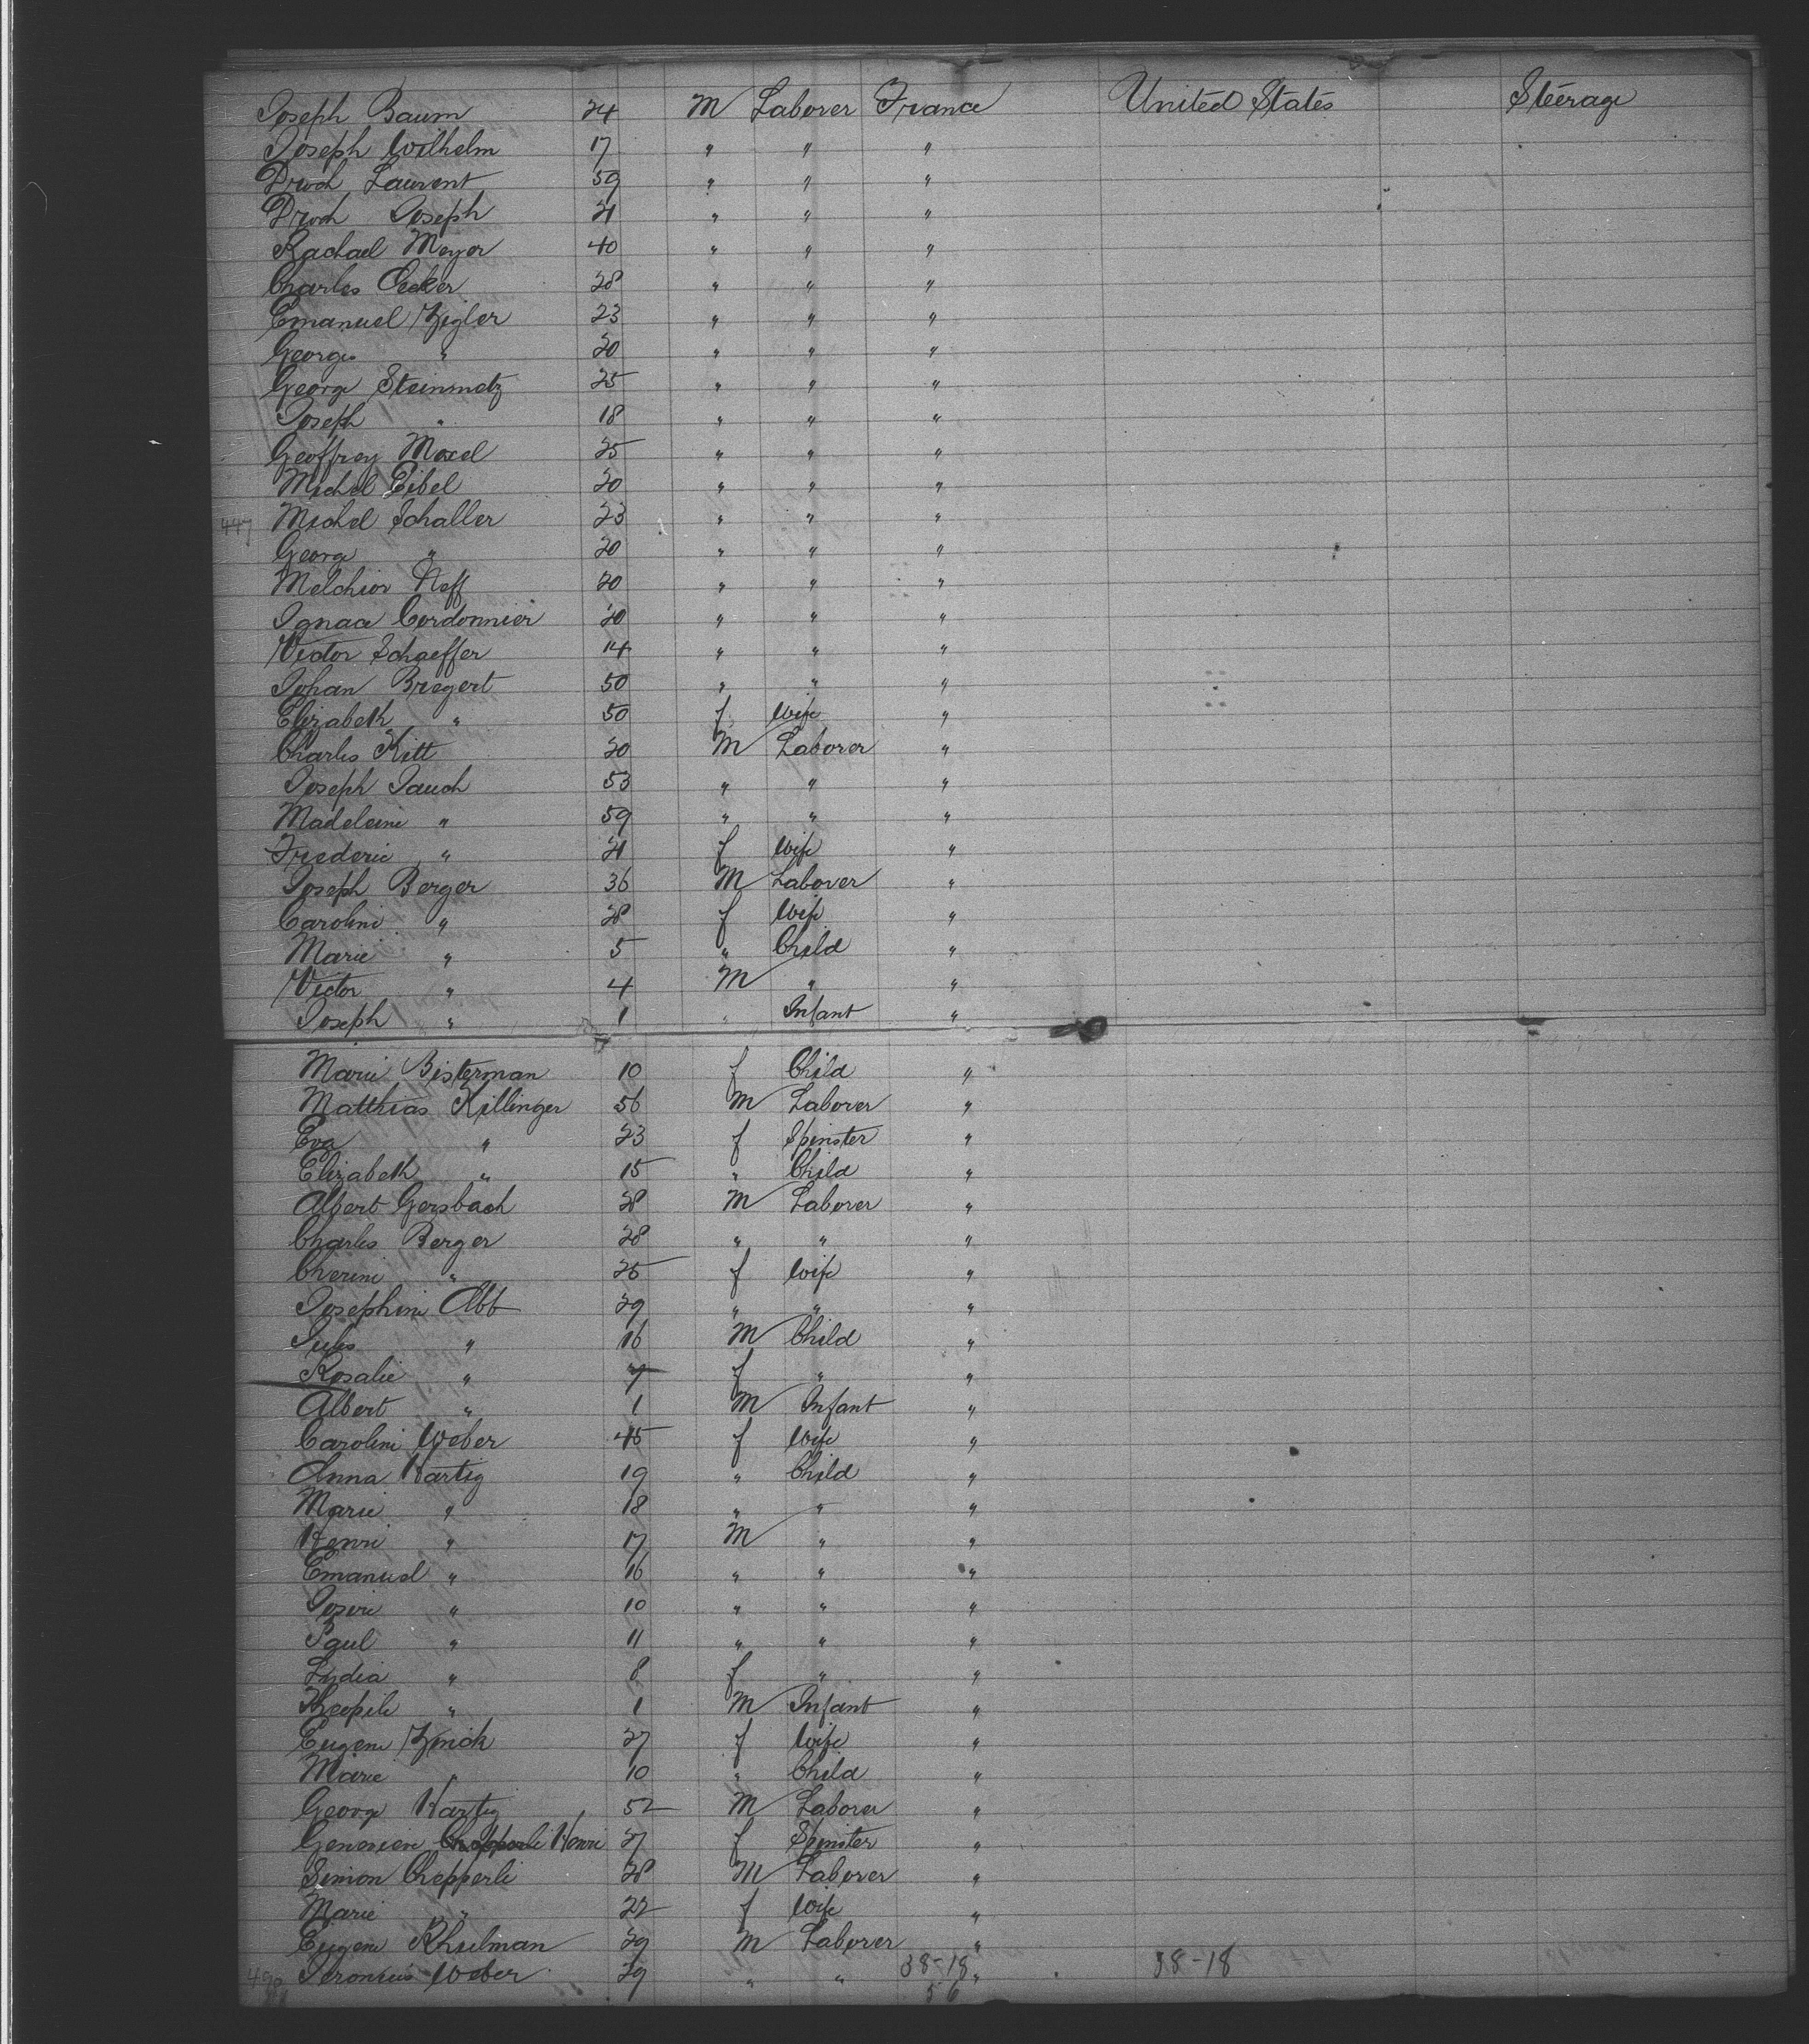 Joseph Baum 24 M Laborer France United States Steerage
Joseph Wilhelm 17 " " "
Droch Laurent 59 " " "
Droch Joseph 21 " " "
Rachael Meyer 40 " " "
Charles Ecker 28 " " "
Emanuel Zigler 23 " " "
Georges " 20 " " "
George Steinmetz 25 " " "
Joseph " 18 " " "
Geoffrey Moxel 25 " " "
Michel Eibel 20 " " "
447 Michel Schaller 23 " " "
George " 20 " " "
Melchior Neff 20 " " "
Ignace Cordonnier 20 " " "
Victor Schaeffer 14 " " "
Johan Bregert 50 " " "
Elizabeth " 50 f Wife "
Charles Kitt 20 M Laborer "
Joseph Jauch 53 " " "
Madeleine " 59 " " "
Frederic " 21 f Wife "
Joseph Berger 36 M Laborer "
Caroline " 28 f Wife "
Marie " 5 " Child "
Victor " 4 M " "
Joseph " 1 " Infant "
Marie Bisterman 10 f Child "
Matthias Killinger 56 M Laborer "
Eva " 23 f Spinster "
Elizabeth " 15 " Child "
Albert Gersbach 28 M Laborer "
Charles Berger 28 " " "
Cherine " 25 f Wife "
Josephine Abt 29 " " "
Jules " 16 M Child "
Rosalie " 7 f " "
Albert " 1 M Infant "
Caroline Weber 45 f Wife "
Anna Hartig 19 " Child "
Marie " 18 " " "
Henri " 17 M " "
Emanuel " 16 " " "
" 10 " " "
Paul " 11 " " "
Lydia " 8 f " "
" 1 M Infant "
Eugene Zinck 27 f Wife "
Marie " 10 " Child "
George Hartig 52 M Laborer "
Genevieve Chepperli Henri 27 f Spinster "
Simon Chepperli 28 M Laborer "
Marie " 22 f Wife "
Eugene Rhulman 29 M Laborer "
Weber 29 " " 38-18 " 38-18
56